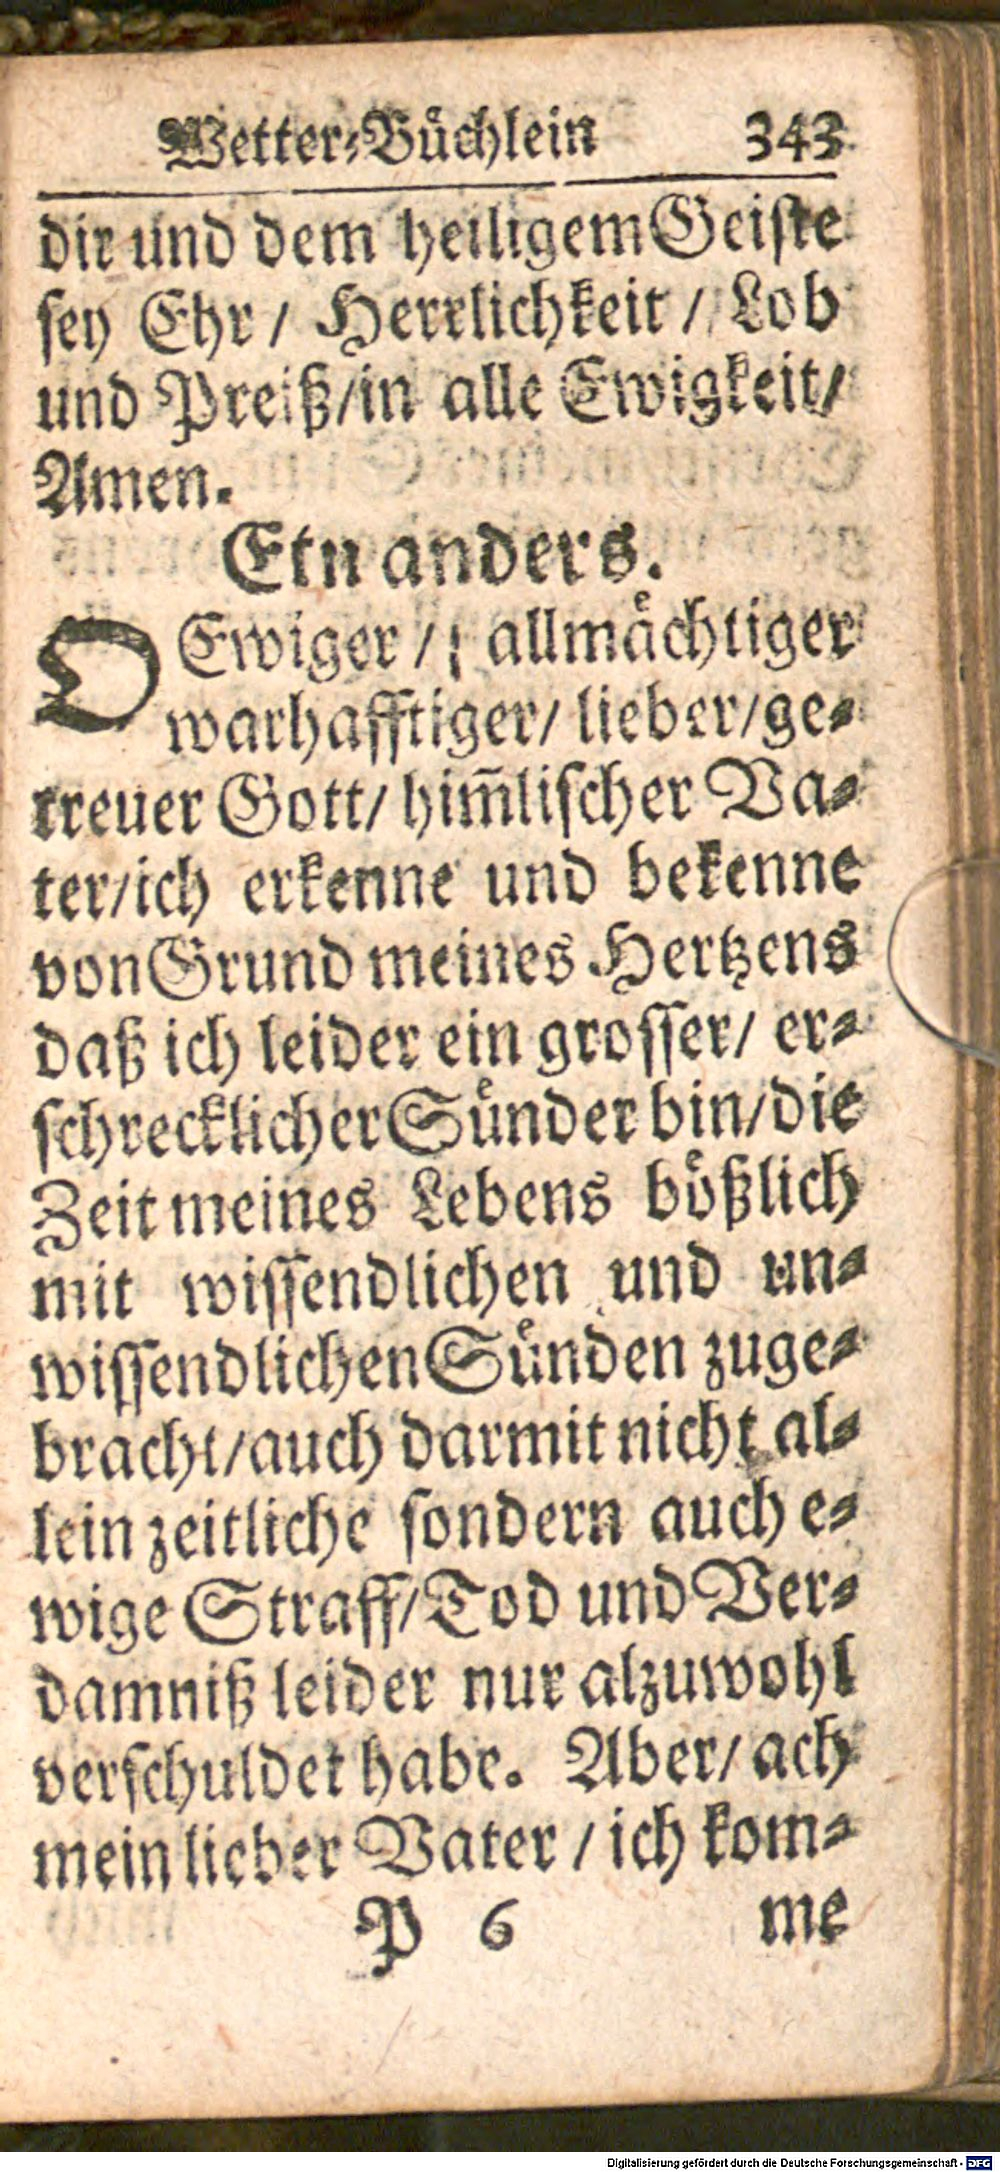 Wetter-Büchlein 343
dir und dem heiligem Geiste
sey Ehr / Herrlichkeit / Lob
und Preiß/in alle Ewigkeit/
Amen.
Etn anders.
O Ewiger / allmächtiger
warhafftiger/ lieber/ge-
treuer Gott/ him̃lischer Va-
ter/ich erkenne und bekenne
von Grund meines Hertzens
daß ich leider ein grosser/ er-
schrecklicher Sünder bin/die
Zeit meines Lebens bößlich
mit wissendlichen und un-
wissendlichen Sünden zuge-
bracht/auch darmit nicht al-
lein zeitliche sondern auch e-
wige Straff/Tod und Ver-
damniß leider nur alzuwohl
verschuldet habe. Aber/ ach
mein lieber Vater / ich kom-
P 6 me
Digitalisierung gefördert durch die Deutsche Forschungsgemeinschaft - DFG